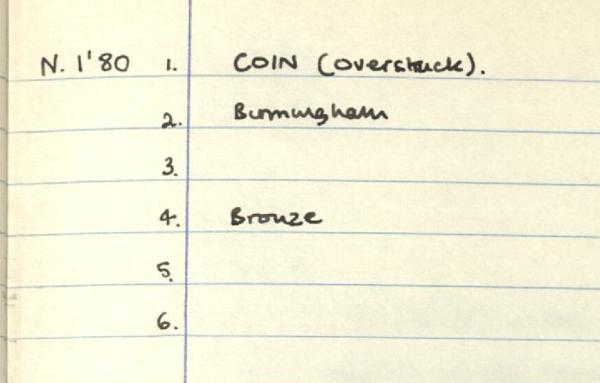 N. 1'80 1. COIN (overstuck).
2. Birmingham
3.
4. Bronze
5.
6.